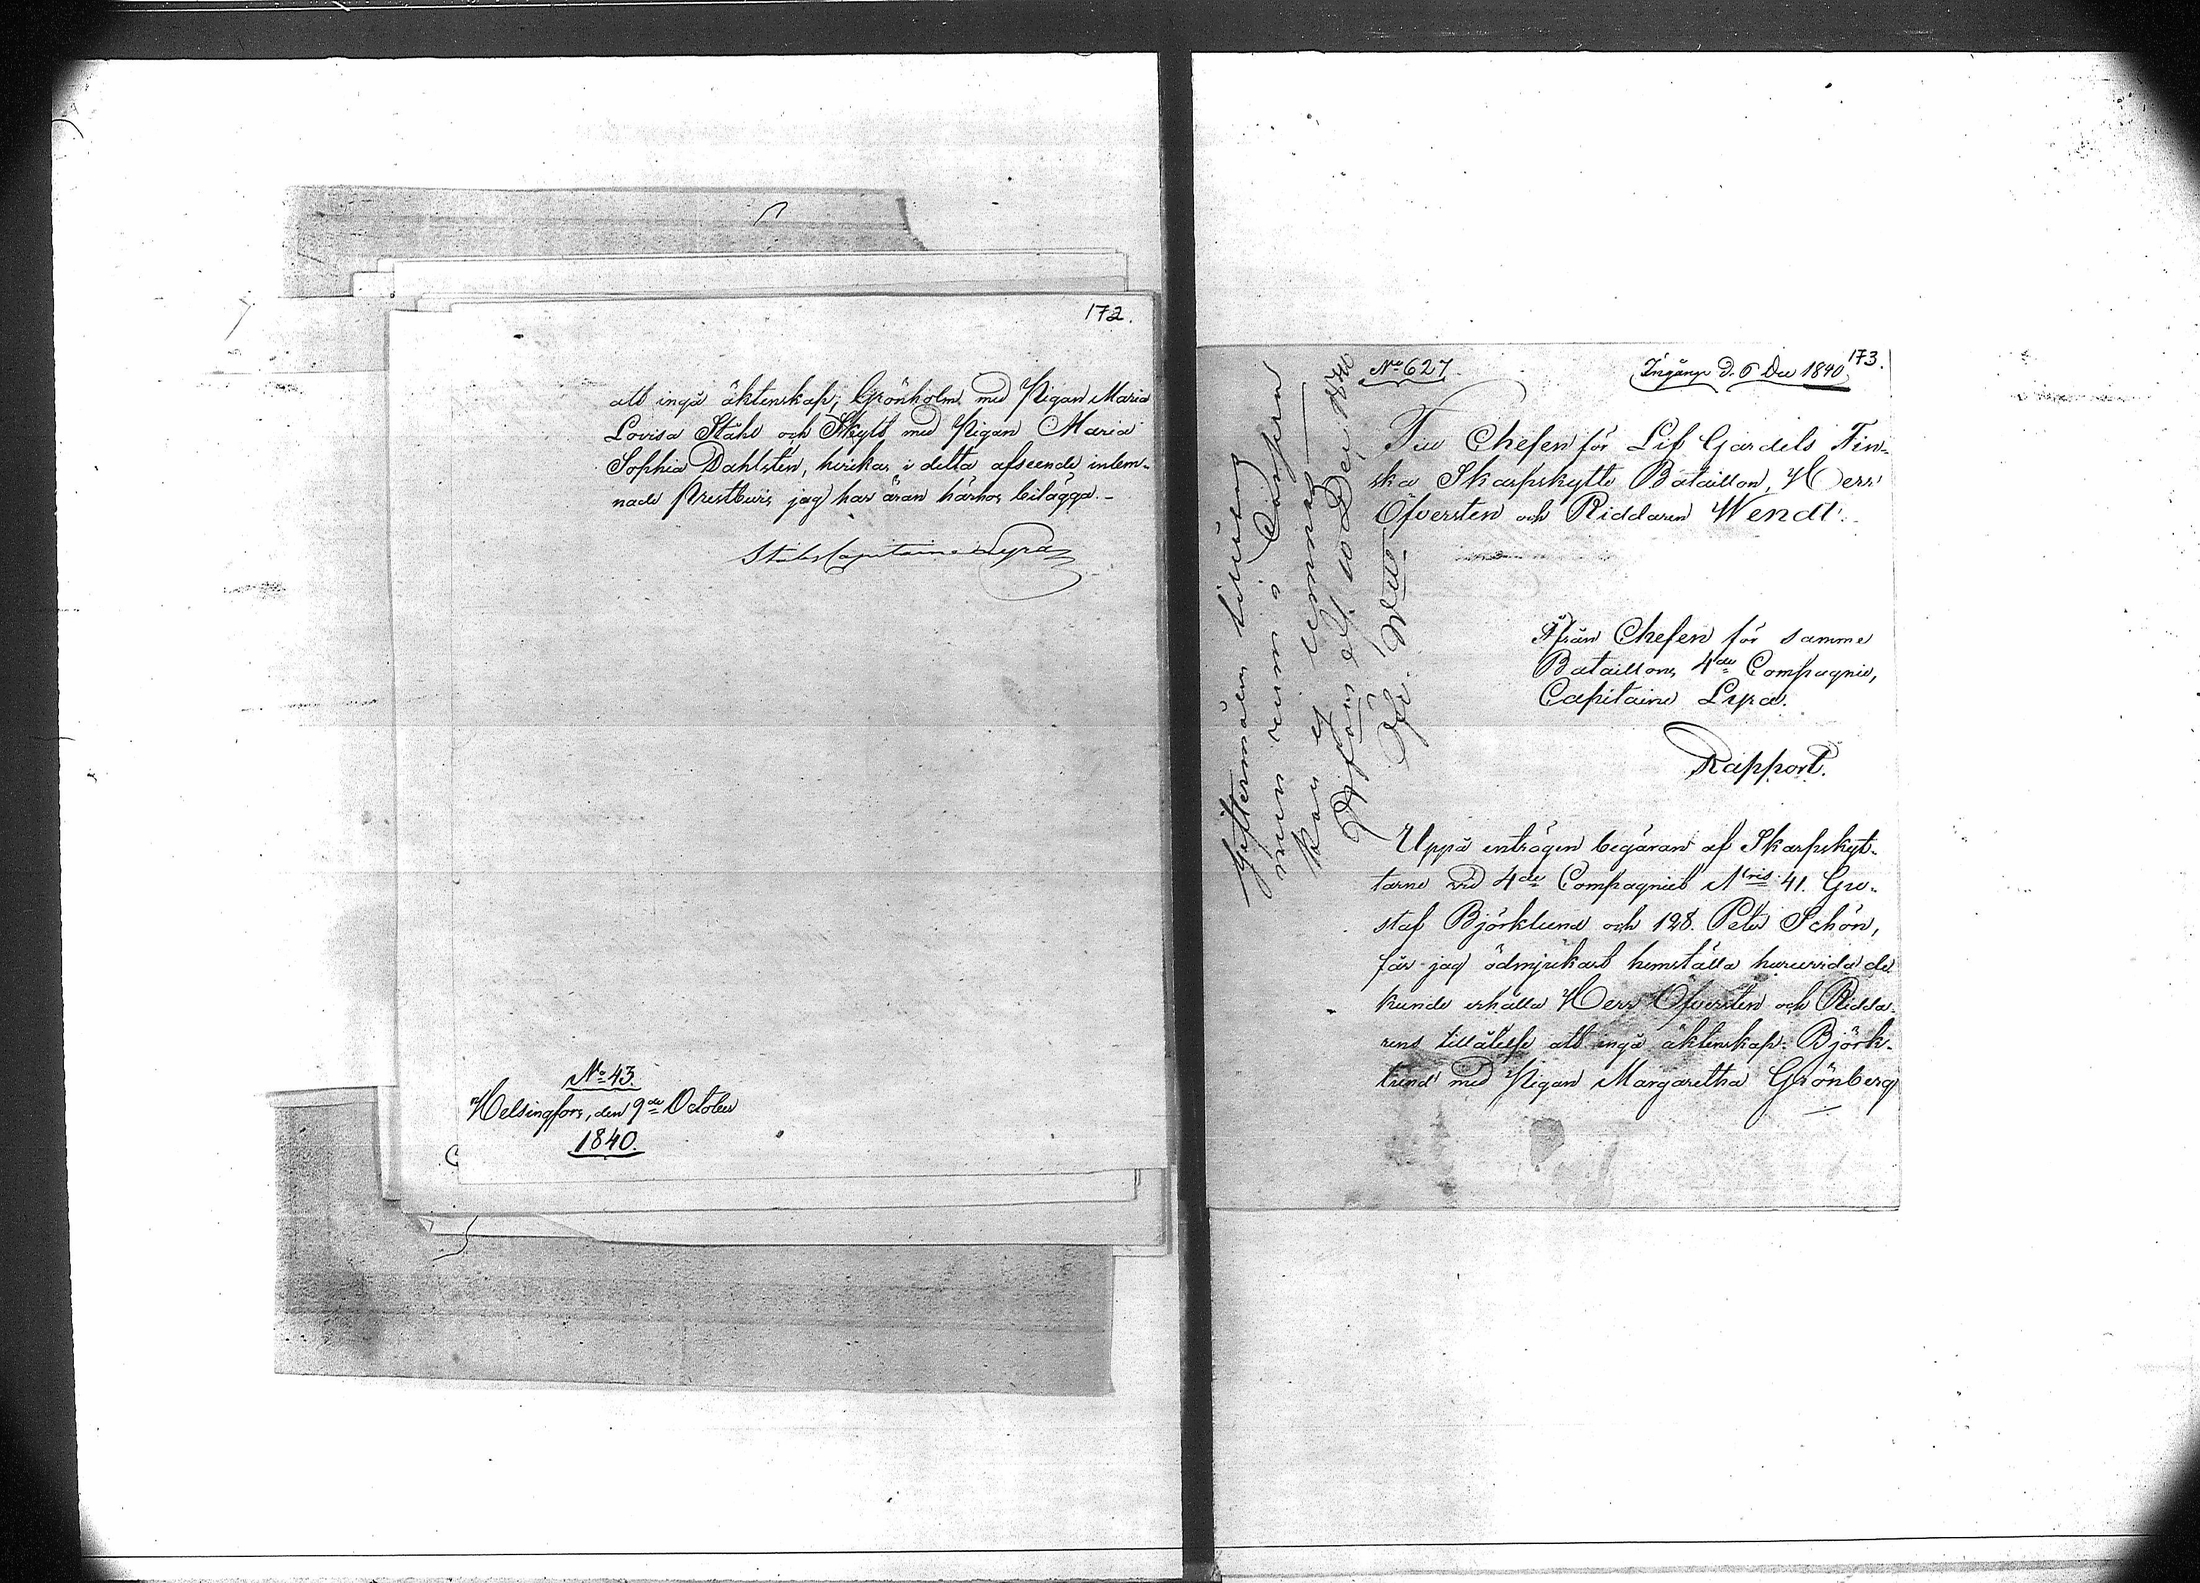 172.
att ingå äktenskap; Grönholm med Pigan Maria
Lovisa Ståhl och Skytt med Pigan Maria
Sophia Dahlsten, hvilkas i detta afseende inlem-
nade Prestbevis jag har äran härhos bilägga.-
StabsCapitaine Lyra
No 43.
Helsingfors, den 9de October
1840.
173.
No 627.
Ingång. d. 6 Dec 1840
Till Chefen för Lif Gardets Fin-
ska Skarpskytte Bataillon, Herr
Öfversten och Riddaren Wendt.
Ifrån Chefen för samme
Bataillons 4de Compagnie,
Capitaine Lyra.
Rapport.
Uppå enträgen begäran af Skarpskyt-
tarne vid 4de Compagniet Nris 41. Gu-
staf Björklund och 128. Peter Schön,
får jag ödmjukast hemställa huruvida de
kunde erhålla Herr Öfverstens och Ridda-
rens tillåtelse att ingå äktenskap: Björk-
lund med Pigan Margaretha Grönberg
Giftermåls tillåtelse
men rum i
kan ej lemnas
Helsingfors d. 10 Dec 1840
Öfv. Wendt